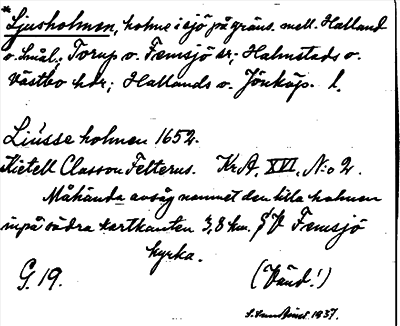 * Ljusholmen, holme i sjö på gräns. mell. Halland
o. Smål.; Torup o. Femsjö sr; Halmstads o.
Västbo hdr; Hallands o. Jönköp. l.
Liusse holmen 1652.
Kietell Classon Felterus. Kr. A. XVI, N:o 2.
Måhända avsåg namnet den lilla holmen
inpå södra kartkanten 3,8 km. SV Femsjö
kyrka.
G. 19. (Vänd!)
1937.